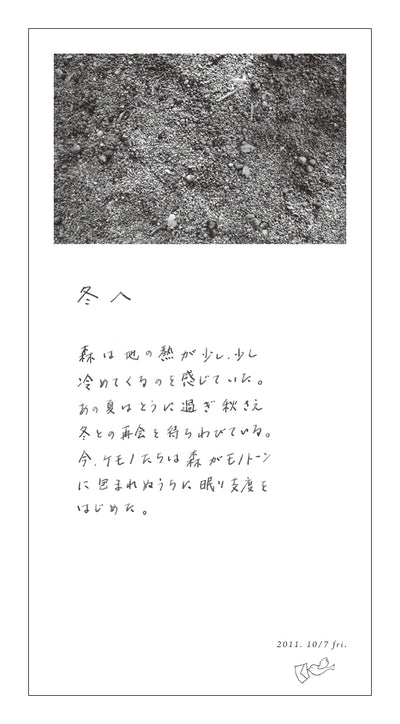 冬へ
森は地の熱が少し、少し
冷めてくるのを感じていた。
あの夏はとうに過ぎ秋さえ
冬との再会を待ちわびている。
今、ケモノたちは森がモノトーン
に包まれぬうちに眠り支度を
はじめた。
2011. 10/7 fri.